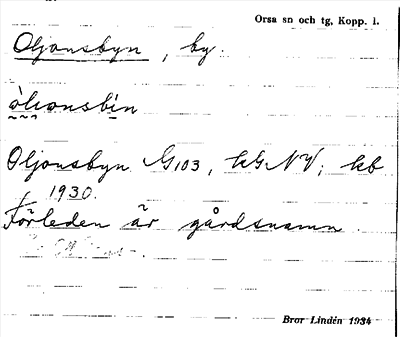 Orsa sn och tg, Kopp. l.
Oljonsbyn, by.
òlionsbìn
Oljonsbyn G103, kGNV; kb
1930.
Förleden är gårdsnamn
Bror Lindén 1934